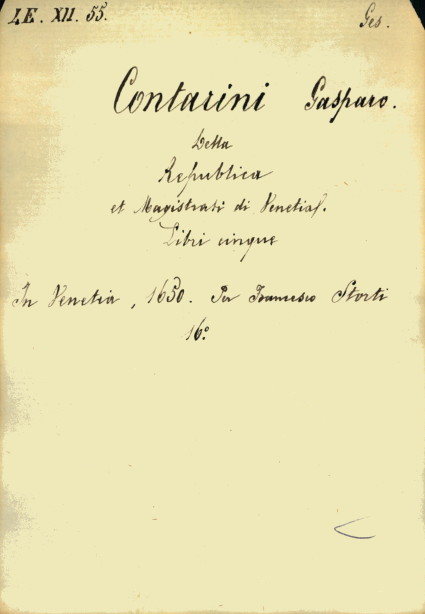 I.E. XII. 55.
Ges.
Contarini Gasparo.
Della
Republica
et Magistrati di Venetia
Libri cinque
In Venetia, 1650. Per Francesco Storti
16.º